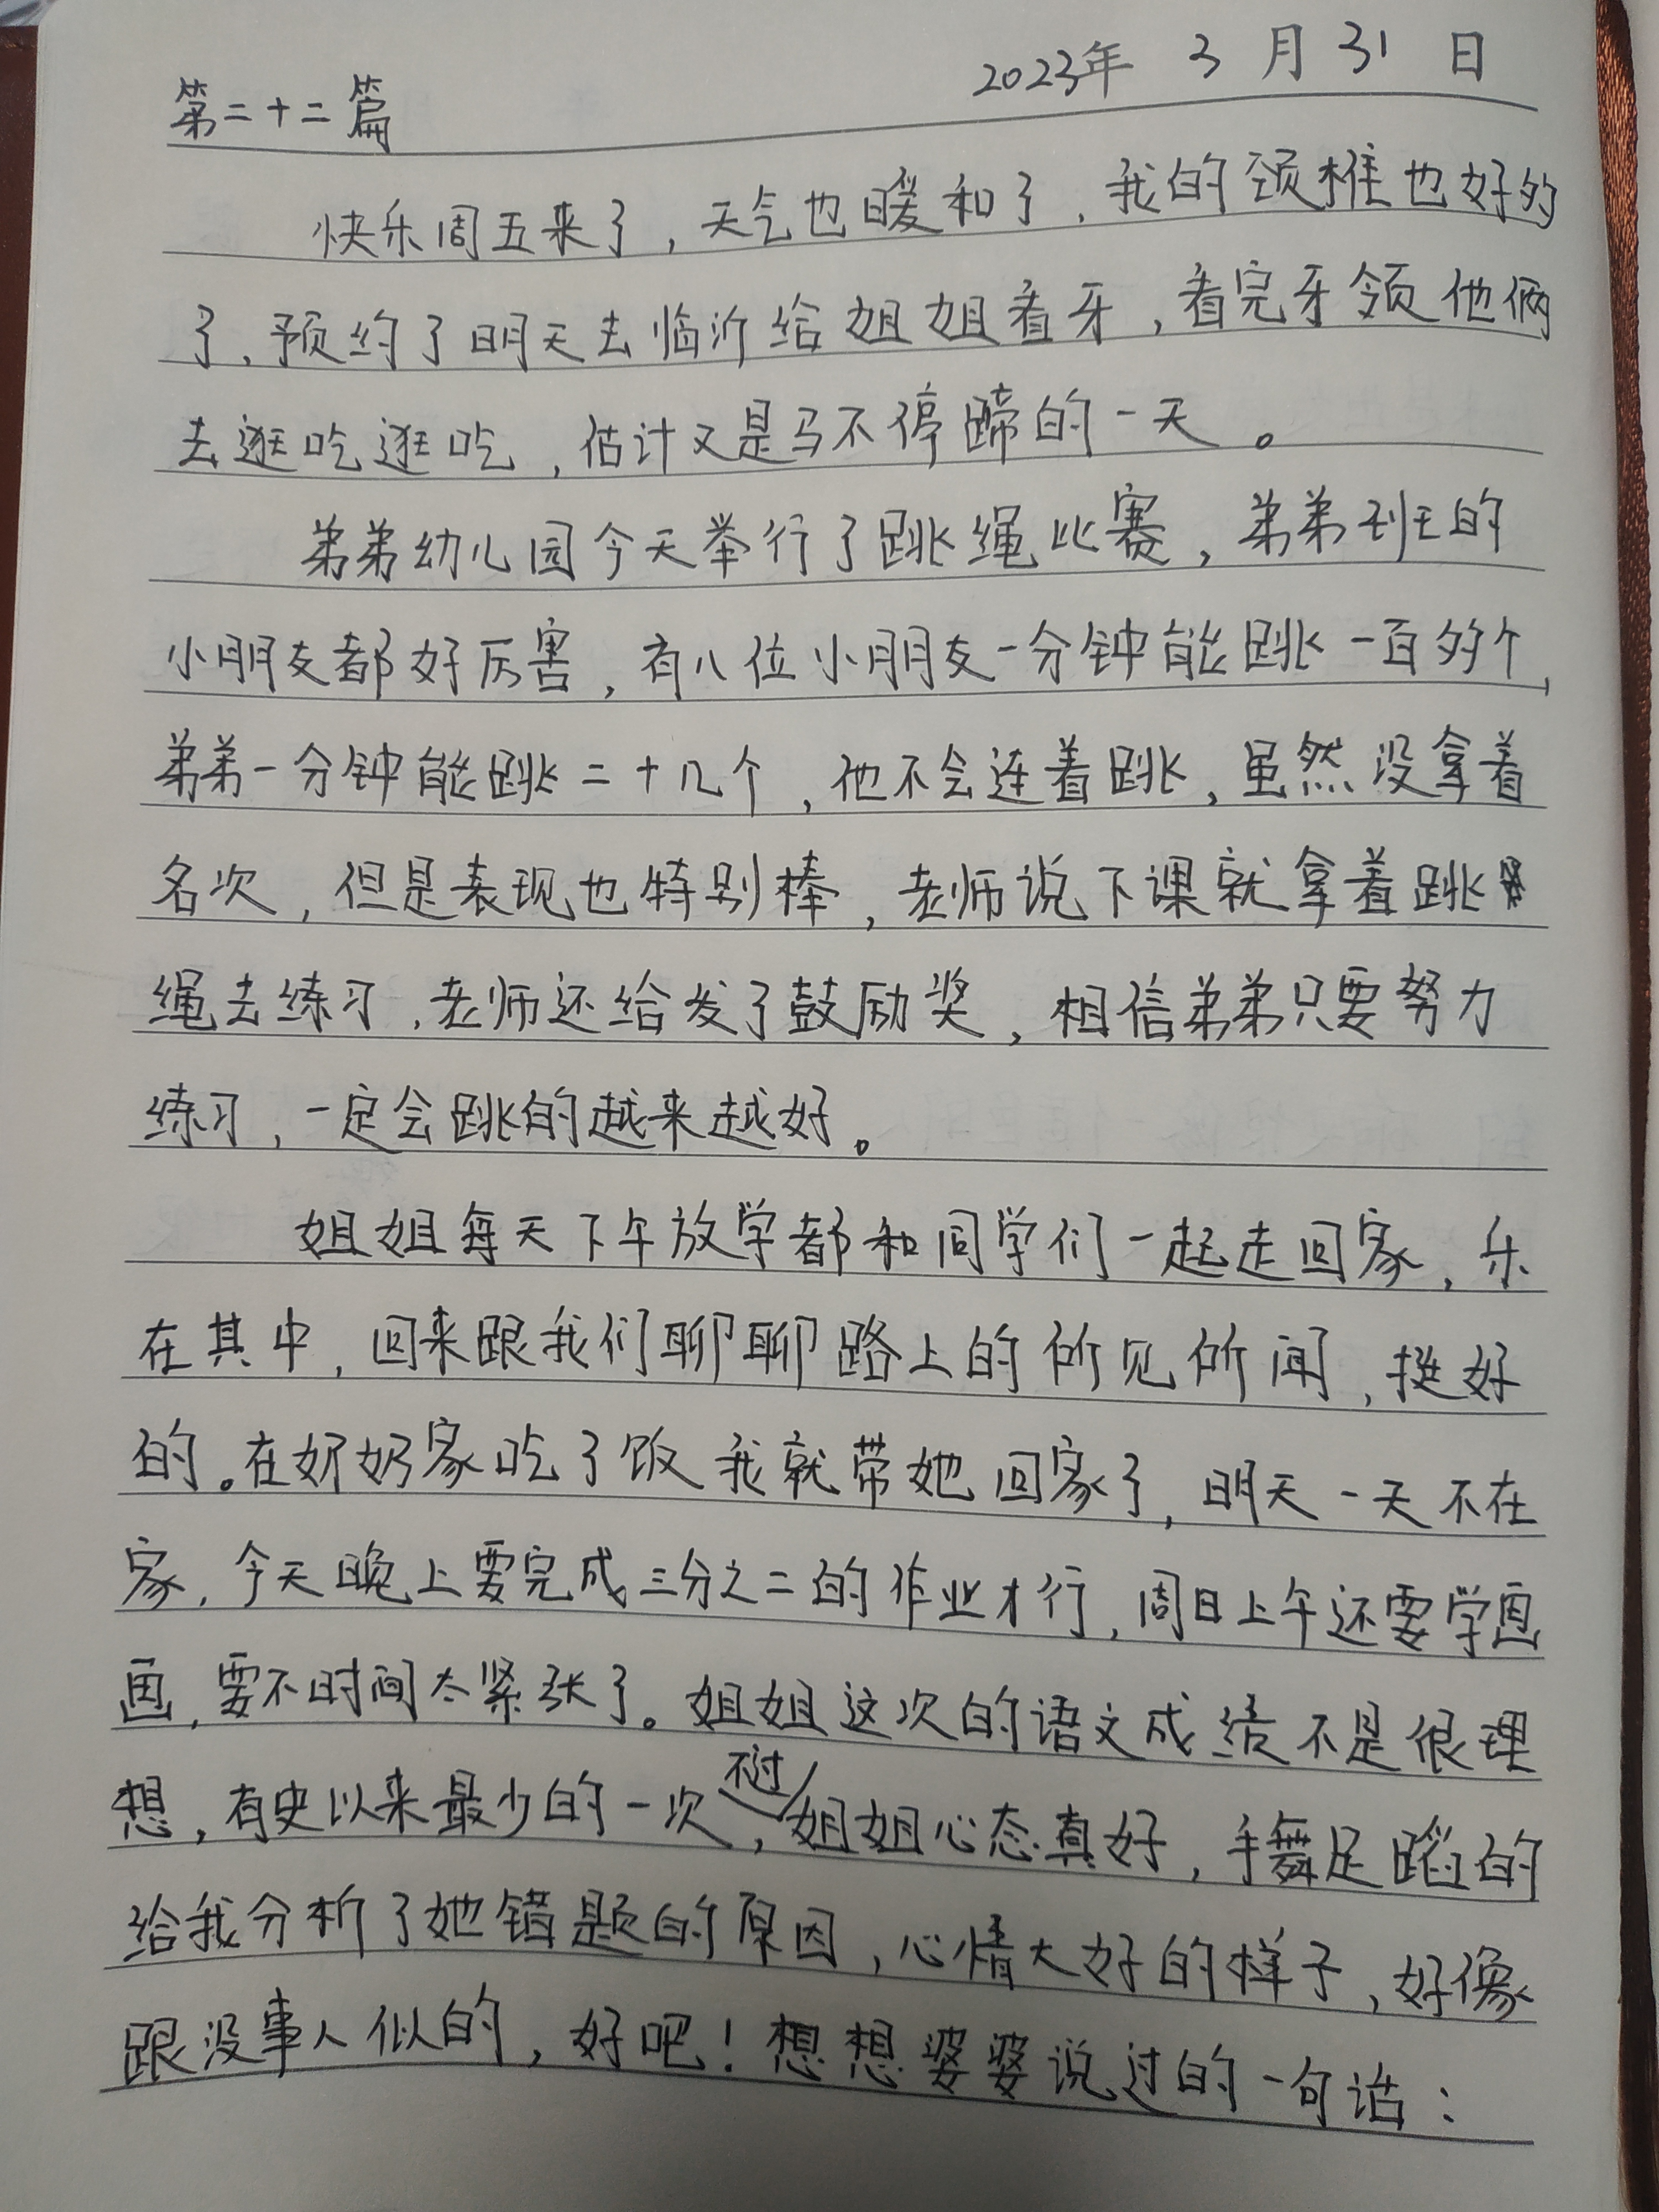 2023年 3 月 31 日
第二十二篇
快乐周五来了，天气也暖和了，我的颈椎也好的
了，预约了明天去临沂给姐姐看牙，看完牙领他俩
去逛吃逛吃，估计又是马不停蹄的一天。
弟弟幼儿园今天举行了跳绳比赛，弟弟班的
小朋友都好厉害，有八位小朋友一分钟能跳一百多个，
弟弟一分钟能跳二十几个，他不会连着跳，虽然没拿着
名次，但是表现也特别棒，老师说下课就拿着跳
绳去练习，老师还给发了鼓励奖，相信弟弟只要努力
练习，一定会跳的越来越好。
姐姐每天下午放学都和同学们一起走回家，乐
在其中，回来跟我们聊聊路上的所见所闻，挺好
的。在奶奶家吃了饭我就带她回家了，明天一天不在
家，今天晚上要完成三分之二的作业才行，周日上午还要学画
画，要不时间太紧张了。姐姐这次的语文成绩不是很理
想，有史以来最少的一次，不过姐姐心态真好，手舞足蹈的
给我分析了她错题的原因，心情大好的样子，好像
跟没事人似的，好吧！想想婆婆说过的一句话：